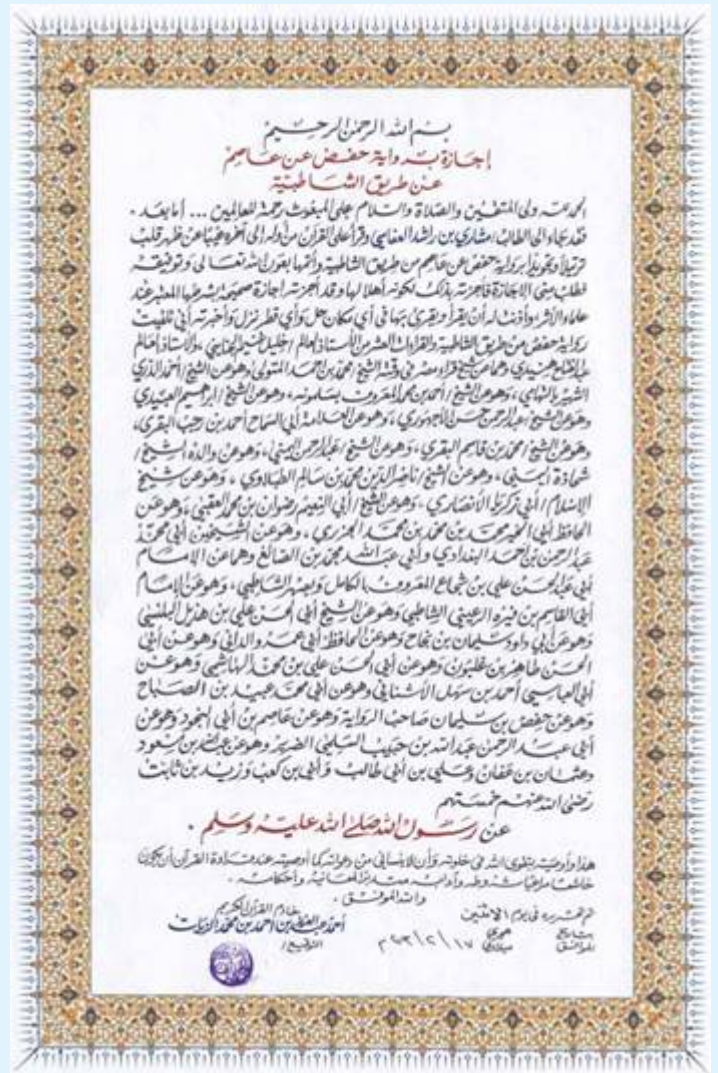 بسم الله الرحمن الرحيم
إجازة برواية حفص عن عاصم
عن طريق الشاطبية
الحمد لله ولي المتقين والصلاة والسلام على المبعوث رحمة للعالمين ... أما بعد .
فقد جاء إلى الطالب / مشاري بن راشد العفاسي وقرأ على القرآن من أوله إلى آخره غيبًا عن ظهر قلب
ترتيلًا وتجويدًا برواية حفص عن عاصم من طريق الشاطبية وأتمها بعون الله تعالى وتوفيقه
فطلب مني الإجازة فأجزته بذلك لكونه أهلا لها وقد أجزته إجازة صحيحة بشرطها المعتبر عند
علماء الأثر وأذنت له أن يقرأ ويقرئ بها في أي مكان حل وأي قطر نزل وأخبرته أني تلقيت
رواية حفص من طريق الشاطبية والقراءات العشر من الأستاذ العالم الجليل والأستاذ العالم
عبد الفتاح هنيدي وهما عن شيخ قراء مصر في وقته الشيخ محمد بن أحمد المتولي وهو عن الشيخ / أحمد الدري
الشهير بالتهامي ، وهو عن الشيخ / أحمد بن محمد المعروف بسلمونه ، وهو عن الشيخ / إبراهيم العبيدي
وهو عن الشيخ / عبد الرحمن حسن الأجهوري ، وهو عن العلامة أبي السماح أحمد بن رجب البقري ،
وهو عن الشيخ / محمد بن قاسم البقري ، وهو عن الشيخ / عبد الرحمن اليمني ، وهو عن والده الشيخ /
شحاذة اليمني ، وهو عن الشيخ / ناصر الدين محمد بن سالم الطبلاوي ، وهو عن شيخ
الإسلام / أبي زكريا الأنصاري ، وهو عن الشيخ / أبي النعيم رضوان بن محمد العقبي ، وهو عن
الحافظ أبي الخير محمد بن محمد بن محمد الجزري ، وهو عن الشيخين أبي محمد
عبد الرحمن بن أحمد البغدادي وأبي عبد الله محمد بن الصائغ وهما عن الإمام
أبي عبد الحسن علي بن شجاع المعروف بالكامل وبصهر الشاطبي ، وهو عن الإمام
أبي القاسم بن فيره الرعيني الشاطبي وهو عن الشيخ أبي الحسن علي بن هذيل البلنسي
وهو عن أبي داود سليمان بن نجاح وهو عن الحافظ أبي عمرو الداني وهو عن أبي
الحسن طاهر بن غلبون وهو عن أبي الحسن علي بن محمد الهاشمي وهو عن
أبي العباس أحمد بن سهل الأشناني وهو عن أبي محمد عبيد بن الصباح
وهو عن حفص بن سليمان صاحب الرواية وهو عن عاصم بن أبي النجود وهو عن
أبي عبد الرحمن عبد الله بن حبيب السلمي الضرير وهو عن عبد الله بن مسعود
وعثمان بن عفان وعلي بن أبي طالب وأبي بن كعب وزيد بن ثابت
رضي الله عنهم خمستهم
عن رسول الله صلى الله عليه وسلم .
هذا وأوصيه بتقوى الله في خلوته وأن لا ينساني من دعواته كما أوصيه عند قراءة القرآن أن يكون
خاشعا مراعيا شروطه وآدابه متدبرًا لمعانيه وأحكامه .
والله الموفق .
تم تحريره في يوم الاثنين
خادم القرآن الكريم
بتاريخ هجري
أحمد عبد العزيز بن أحمد بن محمد الزيات
الموافق ميلادي
التوقيع /